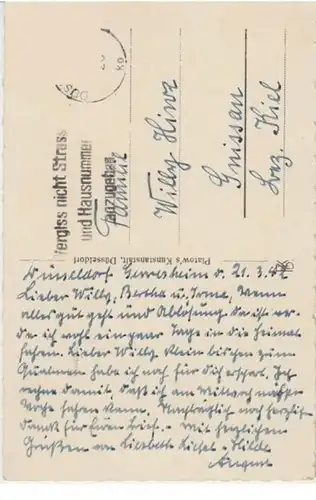 Vergiss nicht Strass
und Hausnummer
anzugeben
Familie
Willy Hinz
Gnissau
Bez. Kiel
Platow's Kunstanstalt, Düsseldorf
Düsseldorf Gerresheim d. 21.3.42
Lieber Willy, Bertha u. Irma, wenn
alles gut geht und Ablösung da ist wer-
de ich wohl ein paar Tage in die Heimat
fahren. Lieber Willy klein bischen zum
Qualmen habe ich noch für dich erspart. Ich
rechne damit, daß ich am Mittwoch nächste
Woche fahren kann. Nachträglich noch herzlich
Dank für Euren Brief. Mit herzlichen
Grüßen an Liesbeth
August